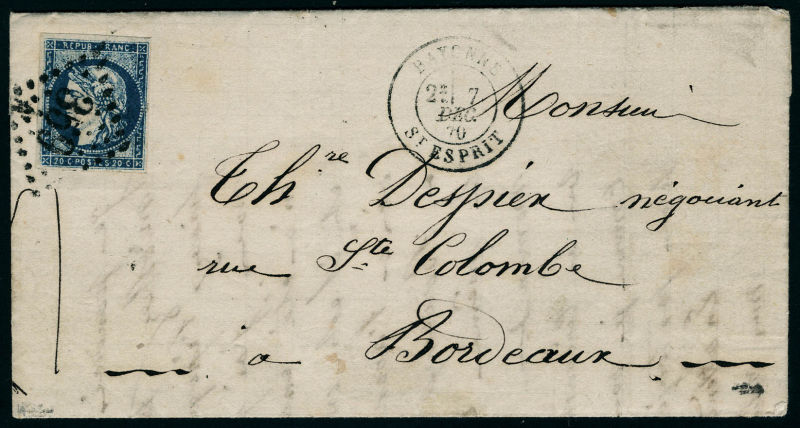 REPUB. FRANC.
20 C. POSTES. 20 C.
BAYONNE
2E 7
DEC.
70
ST ESPRIT
Monsieur
Th re Despien négociant
rue Ste Colombe
à Bordeaux